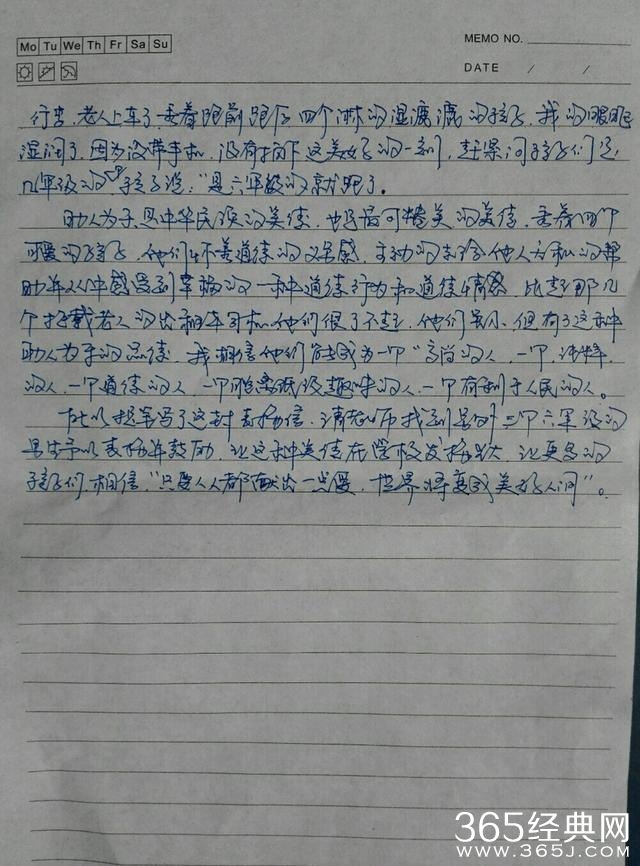 Mo Tu We Th Fr Sa Su
MEMO NO.
DATE / /
行李,老人上车了,看着跟前跟后四个淋的湿漉漉的孩子,我的眼眶
湿润了,因为没带手机,没有拍下这美好的一刻,赶紧问孩子们是
几年级的,孩子说,"是六年级的就跑了。
助人为乐是中华民族的美德,也是最可赞美的美德,看着四个
可爱的孩子,他们怀着道德的义务感,主动的去给他人无私的帮
助并从中感受到幸福的一种道德行为和道德情感,比起那几
个拒载老人的出租车司机他们很了不起,他们虽小,但有了这种
助人为乐的品德,我相信他们能成为一个"高尚的人,一个纯粹
的人,一个道德的人,一个脱离低级趣味的人,一个有利于人民的人。
所以提笔写了这封表扬信,请老师找到是的三个六年级的
学生予以表扬并鼓励,让这种美德在学校发扬光大,让更多的
孩子们相信,"只要人人都献出一点爱,世界将变成美好人间"。
365经典网
WWW.365J.COM